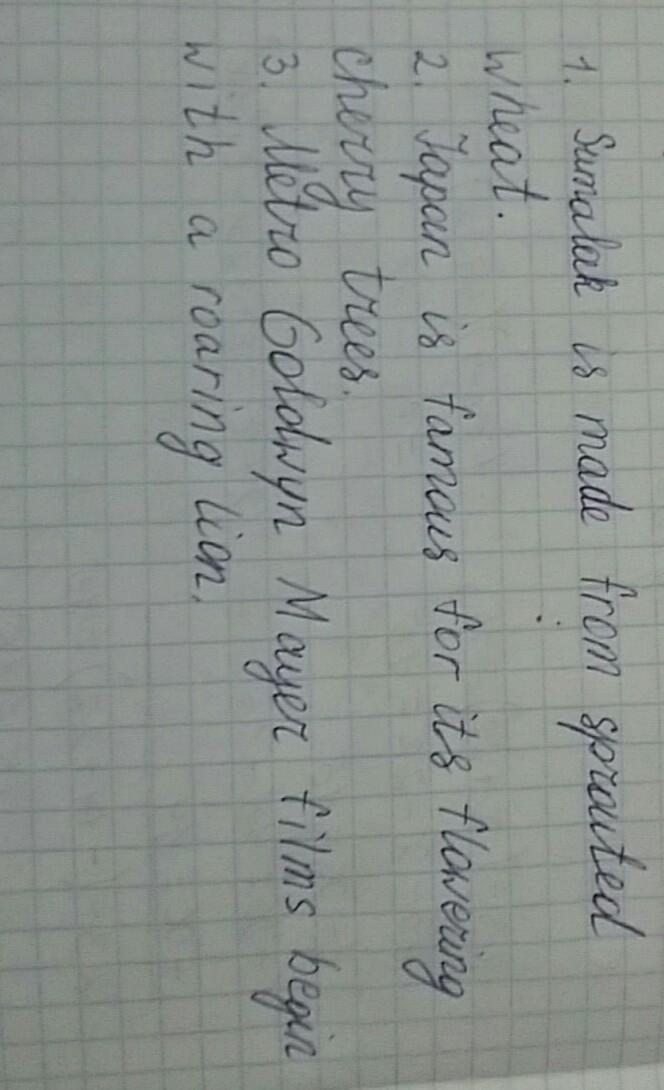 1. Sumalak is made from sprouted
wheat.
2. Japan is famous for its flowering
cherry trees.
3. Metro Goldwyn Mayer films begin
with a roaring lion.